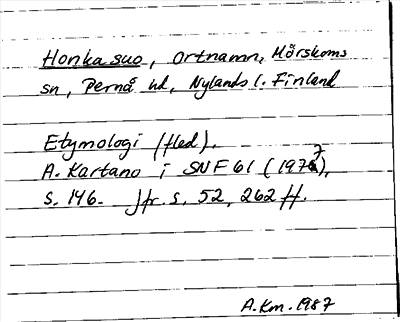 Honkasuo, ortnamn, Mörskoms
sn, Pernå hd, Nylands l. Finland
Etymologi (fled).
A. Kartano i SNF 61 (1977),
s. 146. Jfr. s. 52, 262 ff.
A.Km. 1987